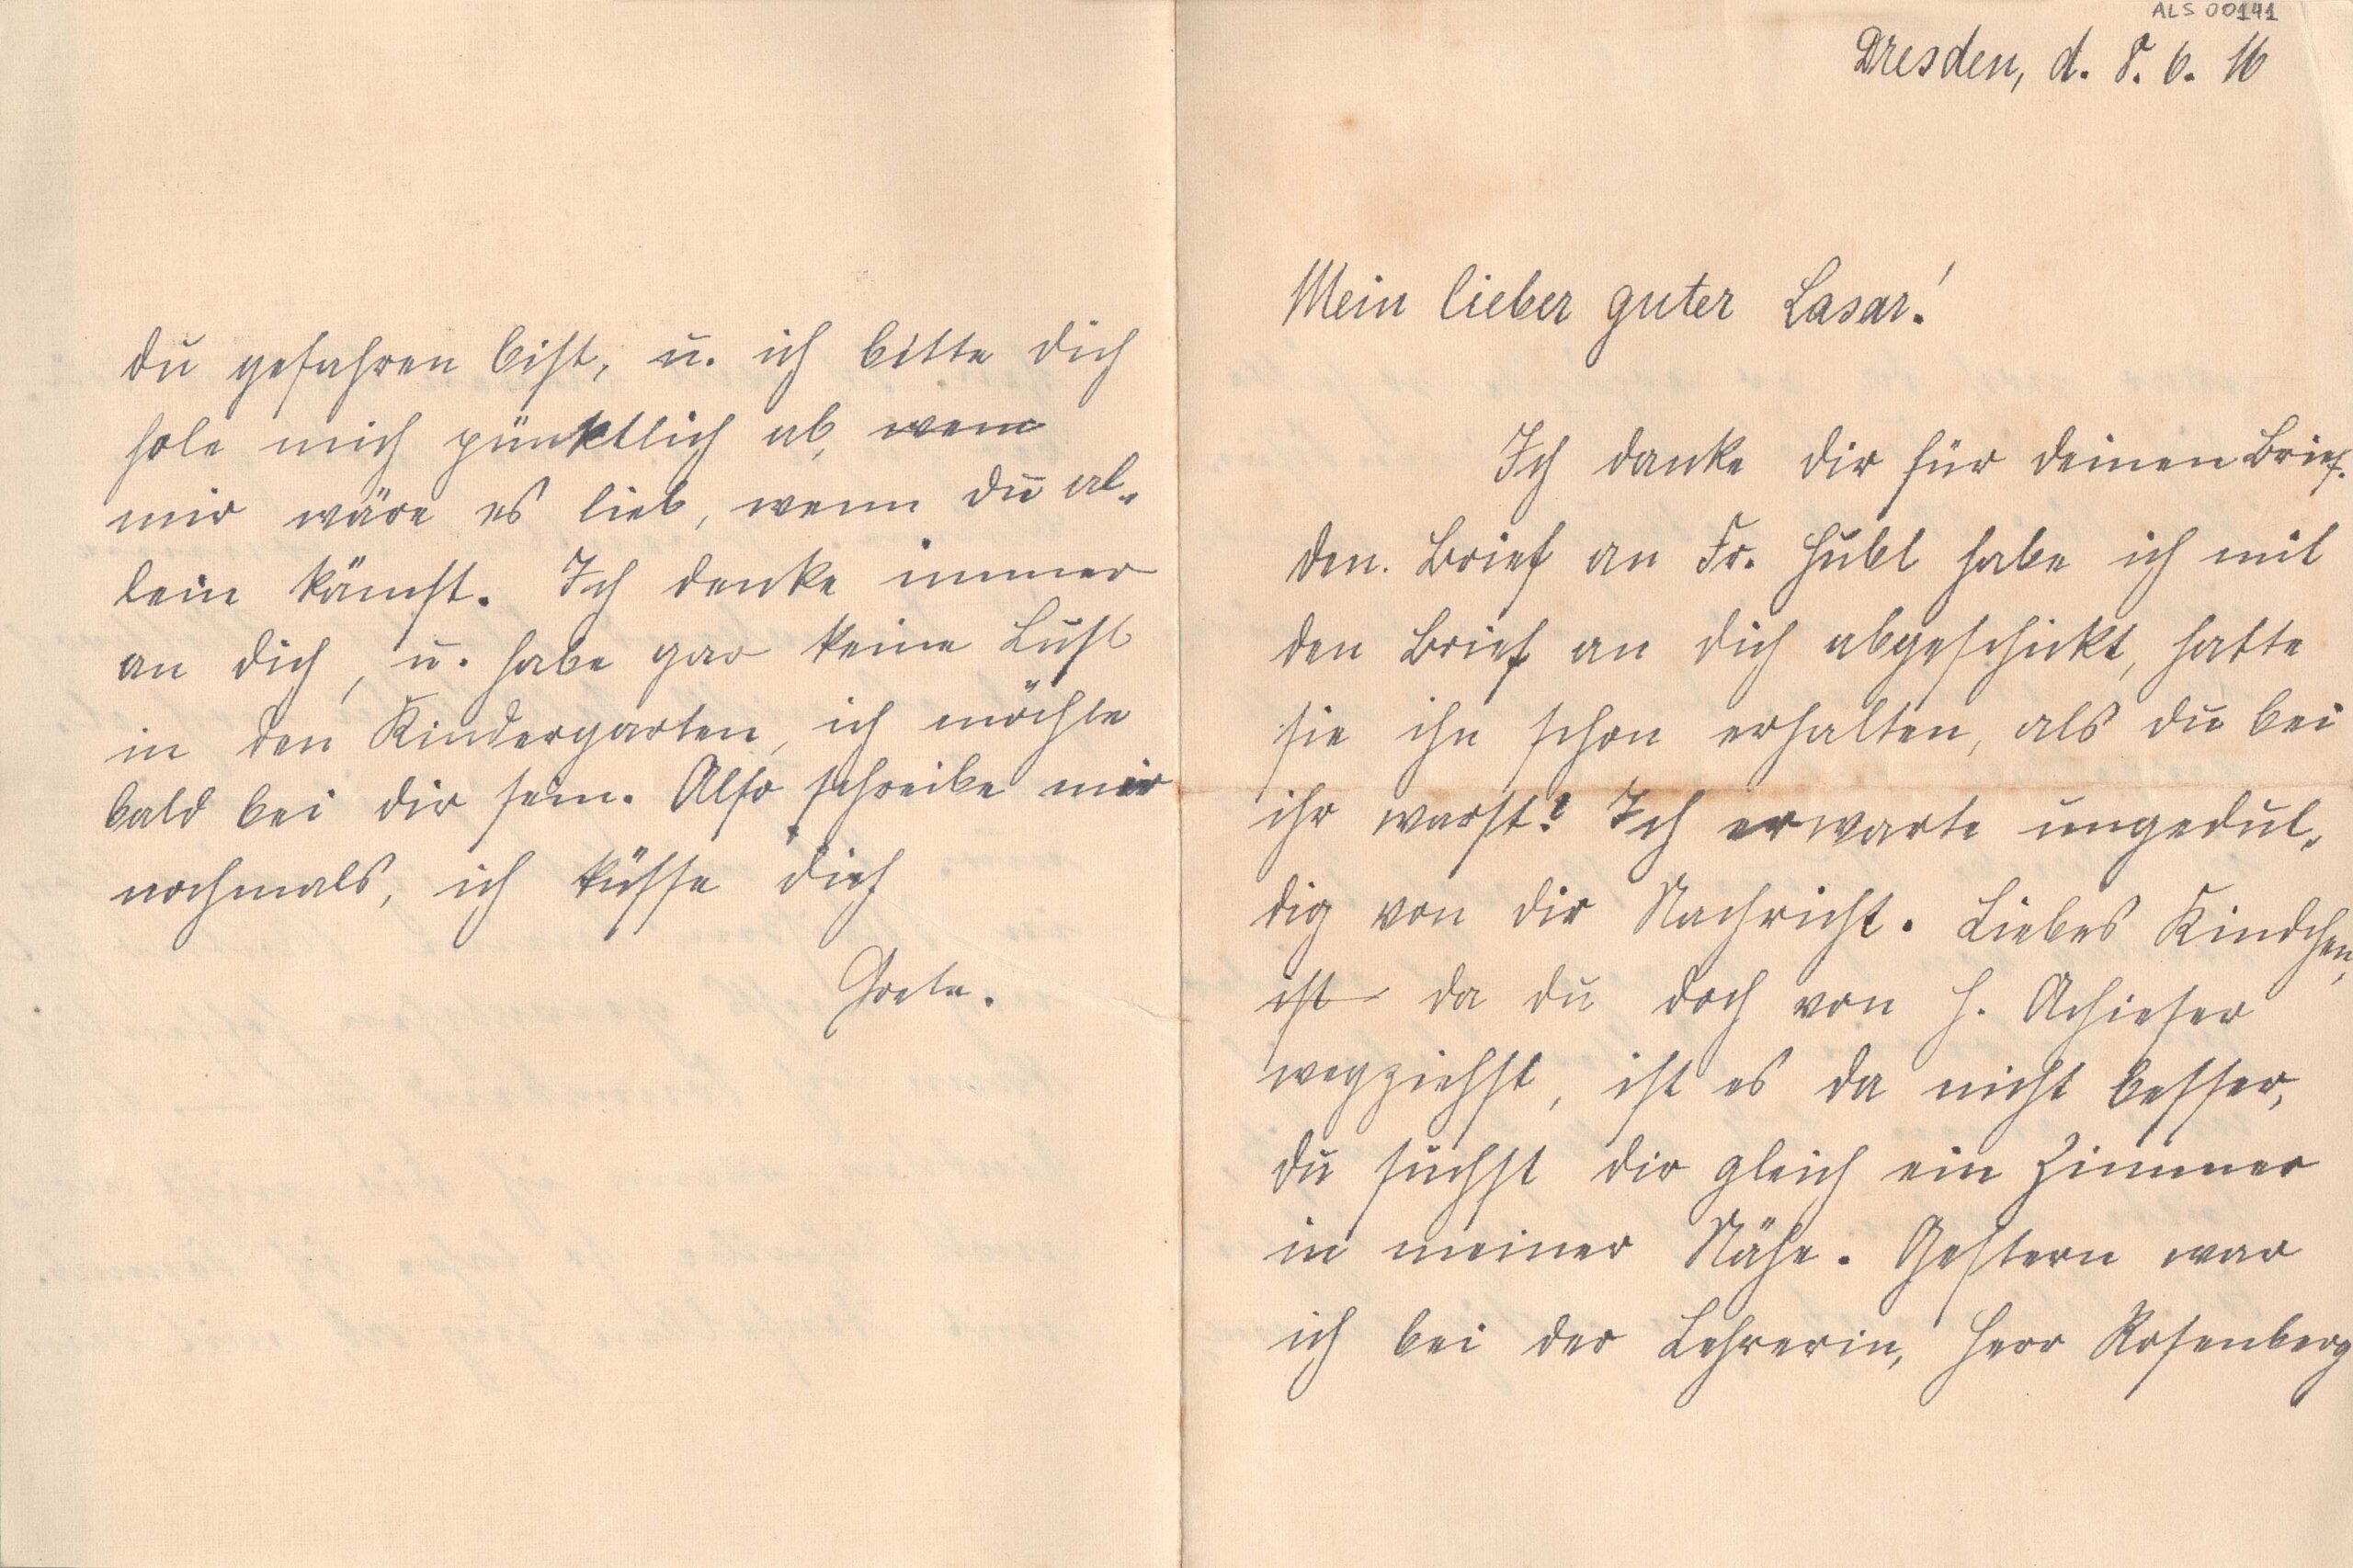 ALS 00141
Dresden, d. 8. 6. 16
Mein lieber guter Lasar!
Ich danke dir für deinen Brief.
den. Brief an Fr. Hubl habe ich mit
den Brief an dich abgeschickt, hatte
sie ihn schon erhalten, als du bei
ihr warst? Ich erwarte ungedul-
dig von dir Nachricht. Liebes Kindchen,
ist da du doch von H. Achieser
wegziehst, ist es da nicht besser,
du suchst dir gleich ein Zimmer
in meiner Nähe. Gestern war
ich bei der Lehrerin, Herr Rosenberg
du gefahren bist, u. ich bitte dich
hole mich pünktlich ab, wenn
mir wäre es lieb, wenn du al-
lein kämst. Ich denke immer
an dich, u. habe gar keine Lust
in den Kindergarten, ich möchte
bald bei dir sein. Also schreibe mir
nochmals, ich küsse dich
Grete.